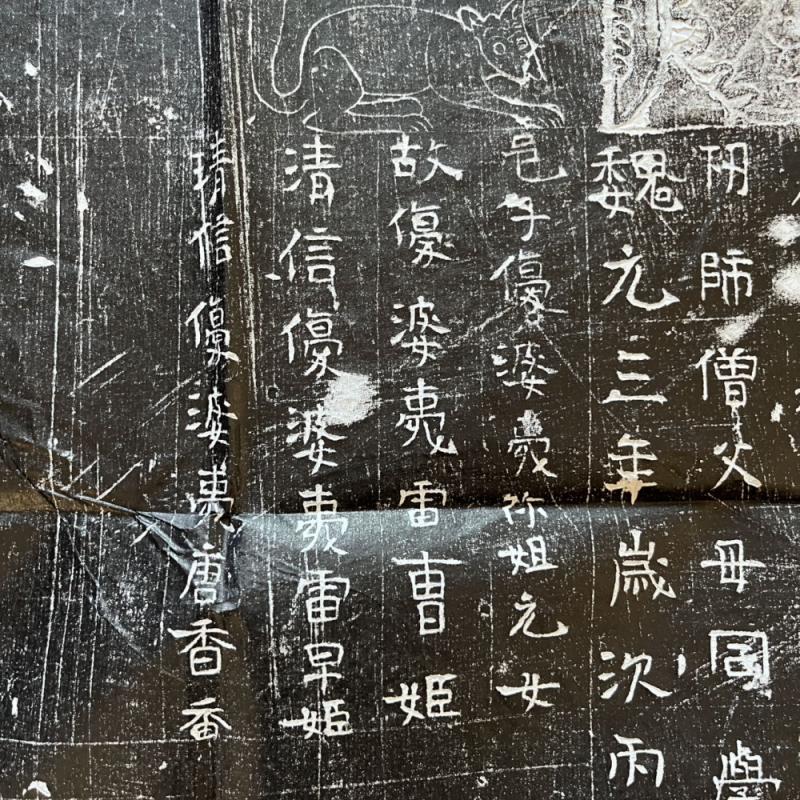 師僧父母
魏元三年歲次丙
邑子優婆夷弥姐元女
故優婆夷雷曹姬
清信優婆夷雷早姬
清信優婆夷唐香